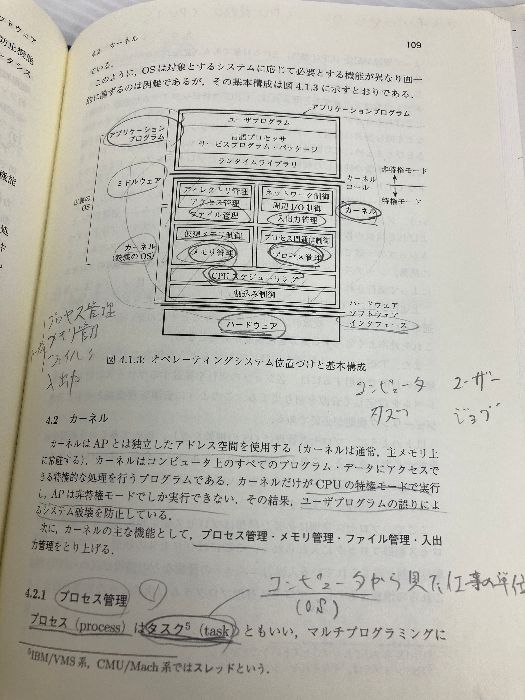 4.2 カーネル
109
ている.
このように, OSは対象とするシステムに応じて必要とする機能が異なり画一
的に論ずるのは困難であるが, その基本構成は図4.1.3に示すとおりである.
アプリケーションプログラム
アプリケーション
プログラム
ユーザプログラム
言語プロセッサ
サービスプログラム・パッケージ
ランタイムライブラリ
カーネル
コール
非特権モード
特権モード
ミドルウェア
広義の
OS
ディレクトリ管理
アクセス管理
ファイル管理
ネットワーク制御
周辺I/O制御
入出力管理
カーネル
カーネル
(狭義のOS)
仮想メモリ制御
メモリ管理
プロセス間通信制御
プロセス管理
CPUスケジューリング
割込み制御
ハードウェア
ハードウェア
ソフトウェア
インタフェース
プロセス管理
メモリ管理
ファイル 〃
入出力
図 4.1.3: オペレーティングシステム位置づけと基本構成
コンピュータ ユーザー
タスク ジョブ
4.2 カーネル
カーネルはAPとは独立したアドレス空間を使用する (カーネルは通常, 主メモリ上
に常駐する). カーネルはコンピュータ上のすべてのプログラム・データにアクセスで
きる特権的な処理を行うプログラムである. カーネルだけがCPUの特権モードで実行
し, APは非特権モードでしか実行できない. その結果, ユーザプログラムの誤りによ
るシステム破壊を防止している.
次に, カーネルの主な機能として, プロセス管理・メモリ管理・ファイル管理・入出
力管理をとり上げる.
コンピュータから見た仕事の単位
(OS)
4.2.1 プロセス管理 1
プロセス (process) はタスク5 (task) ともいい, マルチプログラミングに
5IBM/VMS系, CMU/Mach系ではスレッドという.